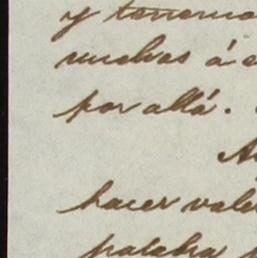 y tenemo
muchas á
por allá.
hacer vale
palabra